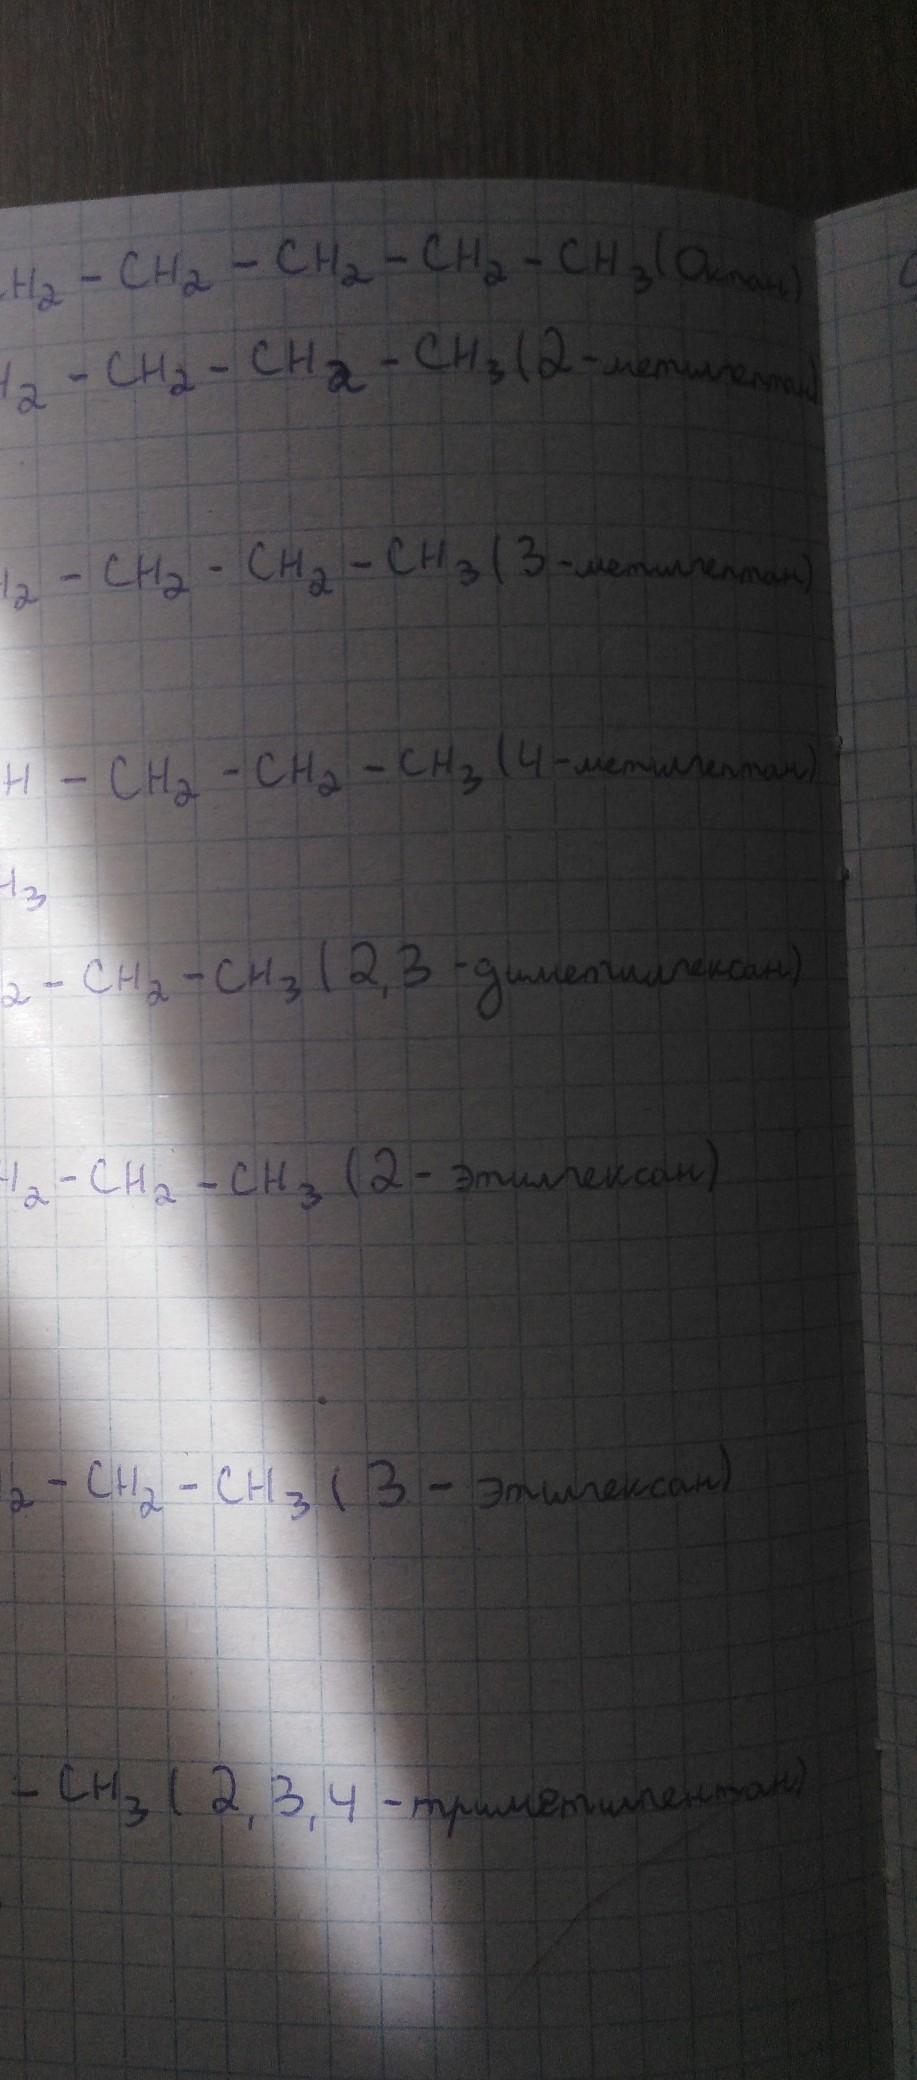 CH₂ – CH₂ – CH₂ – CH₂ – CH₃ (Октан)
H₂ – CH₂ – CH₂ – CH₃ (2-метилгептан)
H₂ – CH₂ – CH₂ – CH₃ (3-метилгептан)
H – CH₂ – CH₂ – CH₃ (4-метилгептан)
H₃
₂ – CH₂ – CH₃ (2,3-диметилгексан)
H₂ – CH₂ – CH₃ (2- этилгексан)
₂ – CH₂ – CH₃ (3 – этилгексан)
– CH₃ (2,3,4 – триметилпентан)